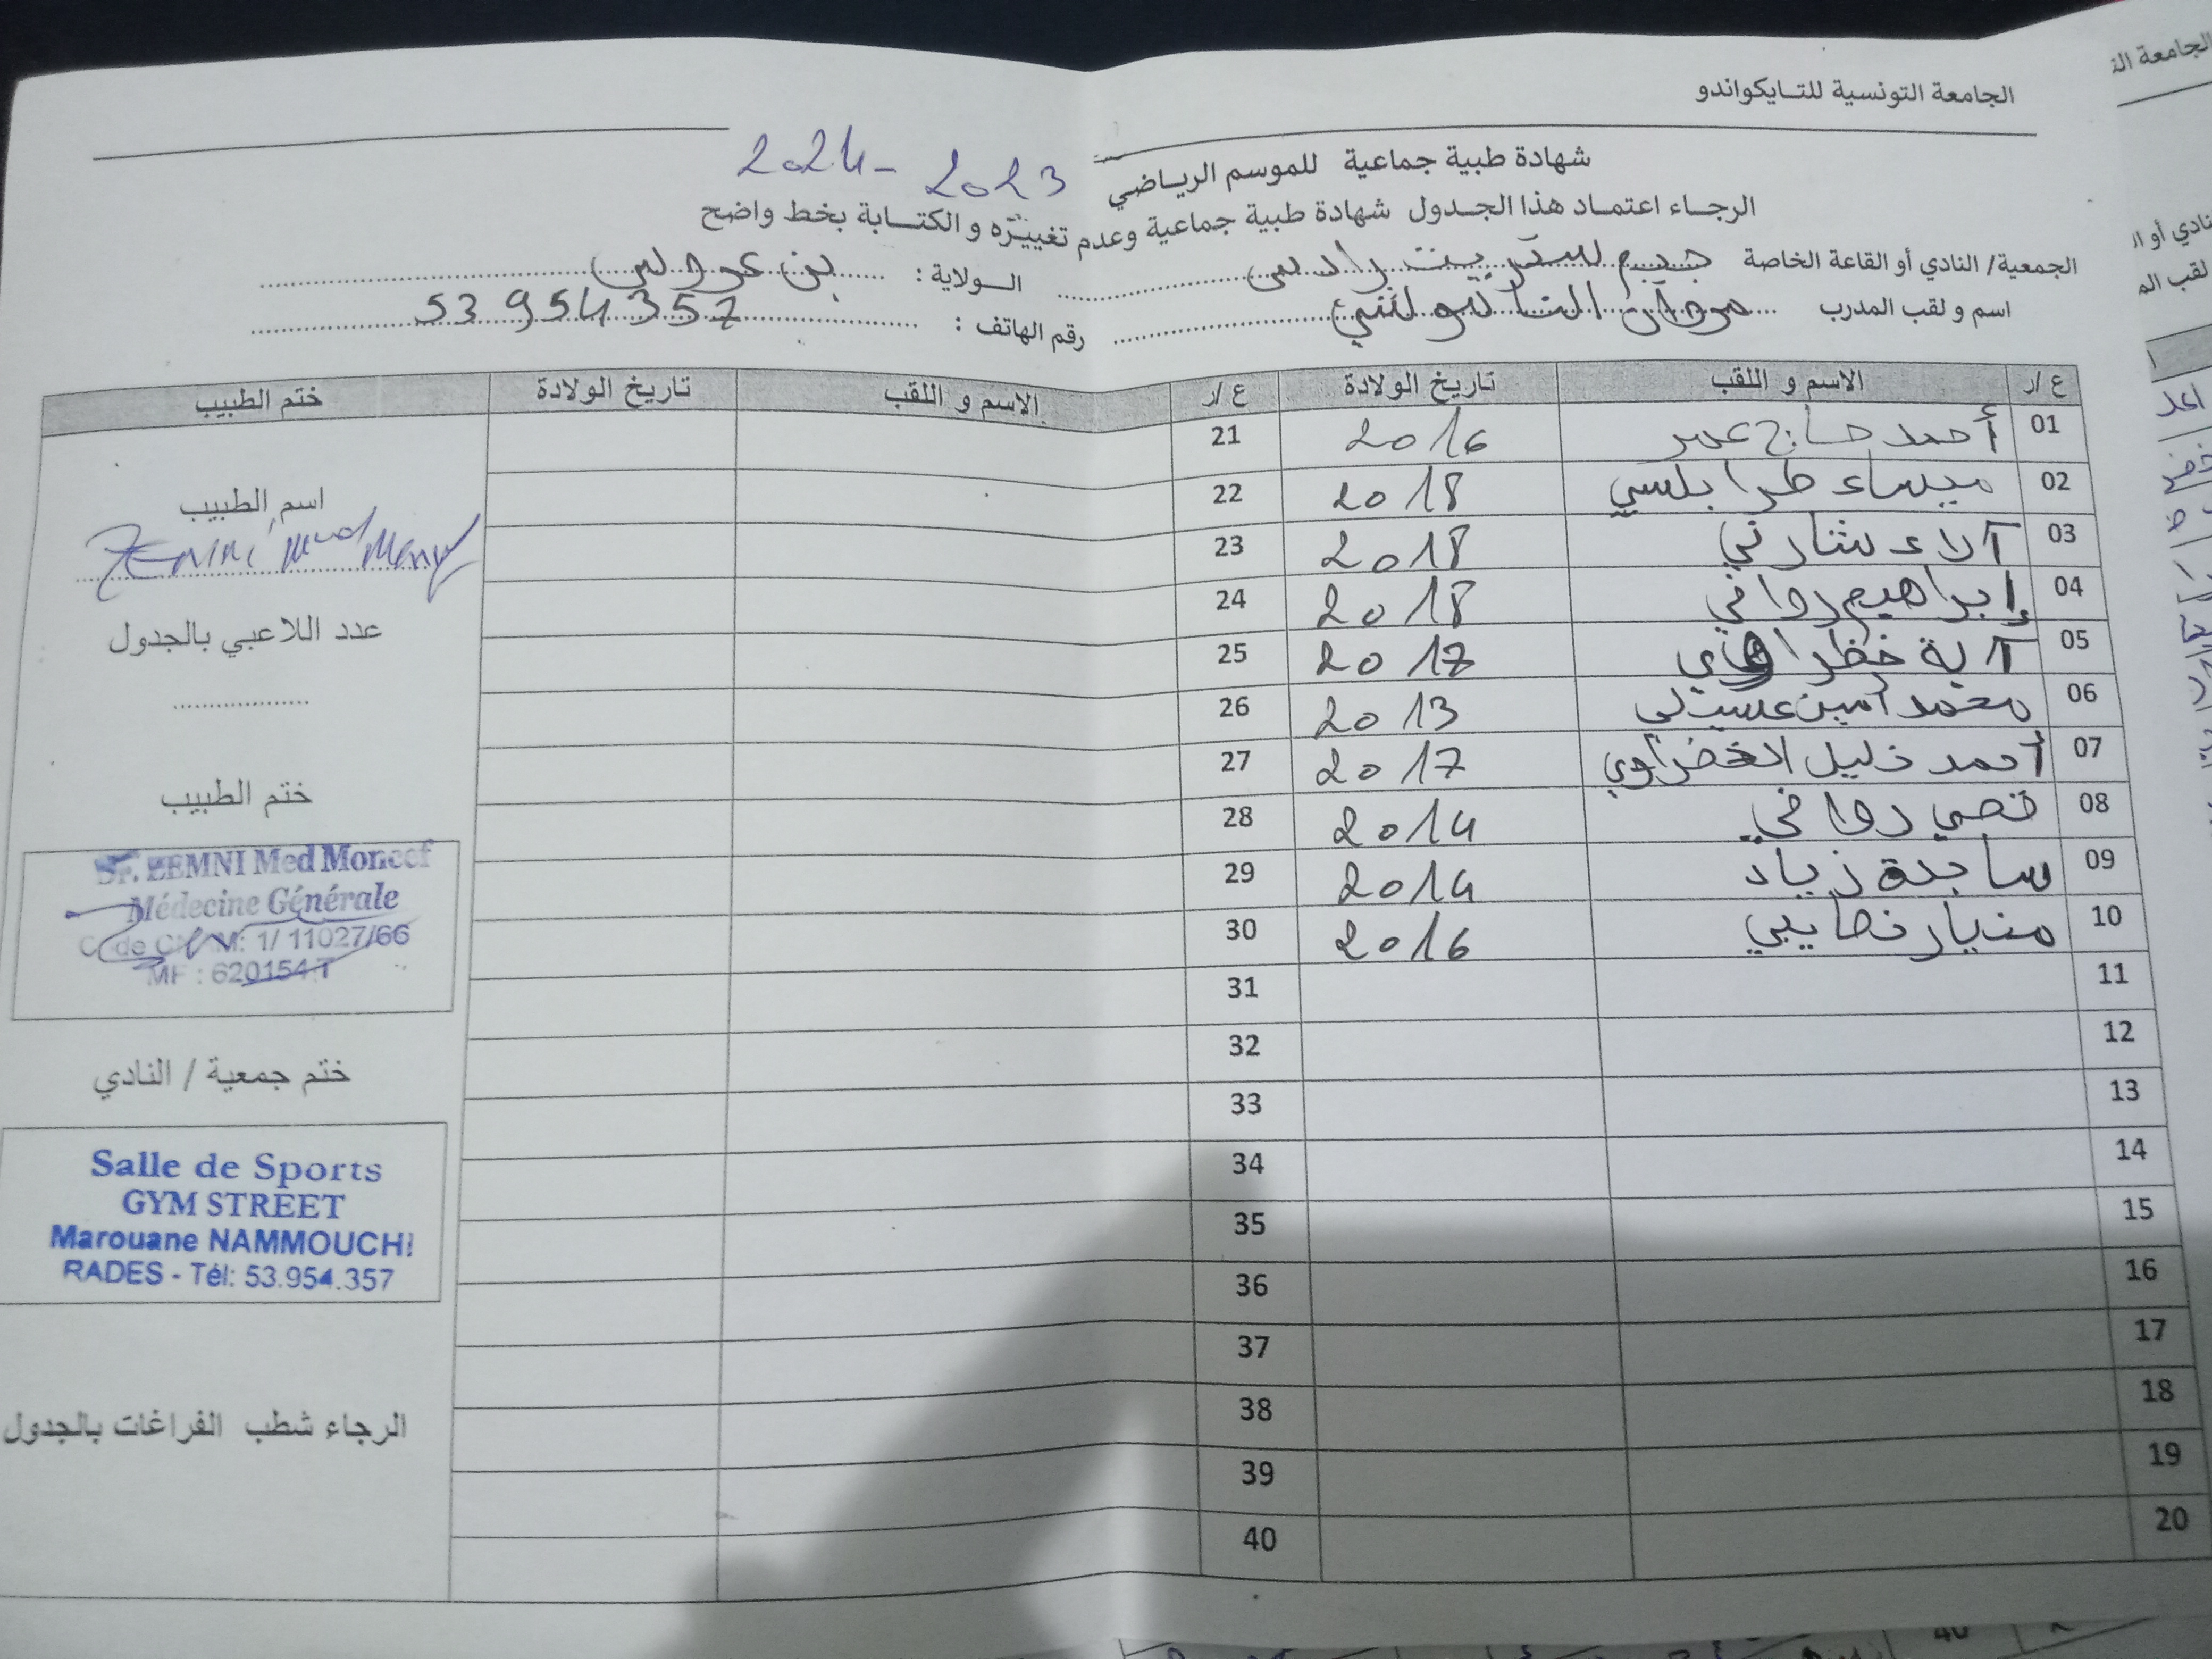 الجامعة التونسية للتايكواندو
شهادة طبية جماعية للموسم الرياضي 2023 - 2024
الرجاء اعتماد هذا الجدول شهادة طبية جماعية وعدم تغييره و الكتابة بخط واضح
الجمعية/ النادي أو القاعة الخاصة جيم ستريت رادس الولاية : بن عروس
اسم و لقب المدرب مروان رقم الهاتف : 53 954 357
ع /ر الاسم و اللقب تاريخ الولادة ع /ر الاسم و اللقب تاريخ الولادة ختم الطبيب
01 أحمد حاج عمر 2016 21
02 ميساء طرابلسي 2018 22
03 آلاء شارني 2018 23
04 إبراهيم روافي 2018 24
05 آية 2017 25
06 محمد أمين 2013 26
07 أحمد خليل الخضراوي 2017 27
08 قصي روافي 2014 28
09 ساجدة زياد 2014 29
10 نصايبي 2016 30
11 31
12 32
13 33
14 34
15 35
16 36
17 37
18 38
19 39
20 40
اسم الطبيب
ZEMNI Med
عدد اللاعبي بالجدول
ختم الطبيب
Dr. ZEMNI Med Moncef
Médecine Générale
Code CNAM: 1/ 11027/66
MF : 620154 T
ختم جمعية / النادي
Salle de Sports
GYM STREET
Marouane NAMMOUCHI
RADES - Tél: 53.954.357
الرجاء شطب الفراغات بالجدول